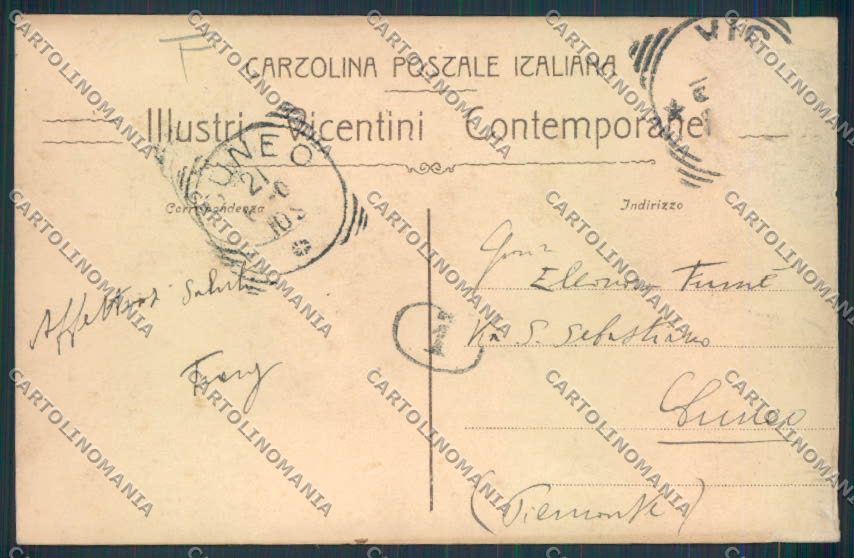 CARTOLINA POSTALE ITALIANA
Illustri Vicentini Contemporanei
Corrispondenza
Indirizzo
CUNEO
21
10
VIC
Saluti
Eleonora
Via S. Sebastiano
Cuneo
(Piemonte)
1
CARTOLINOMANIA